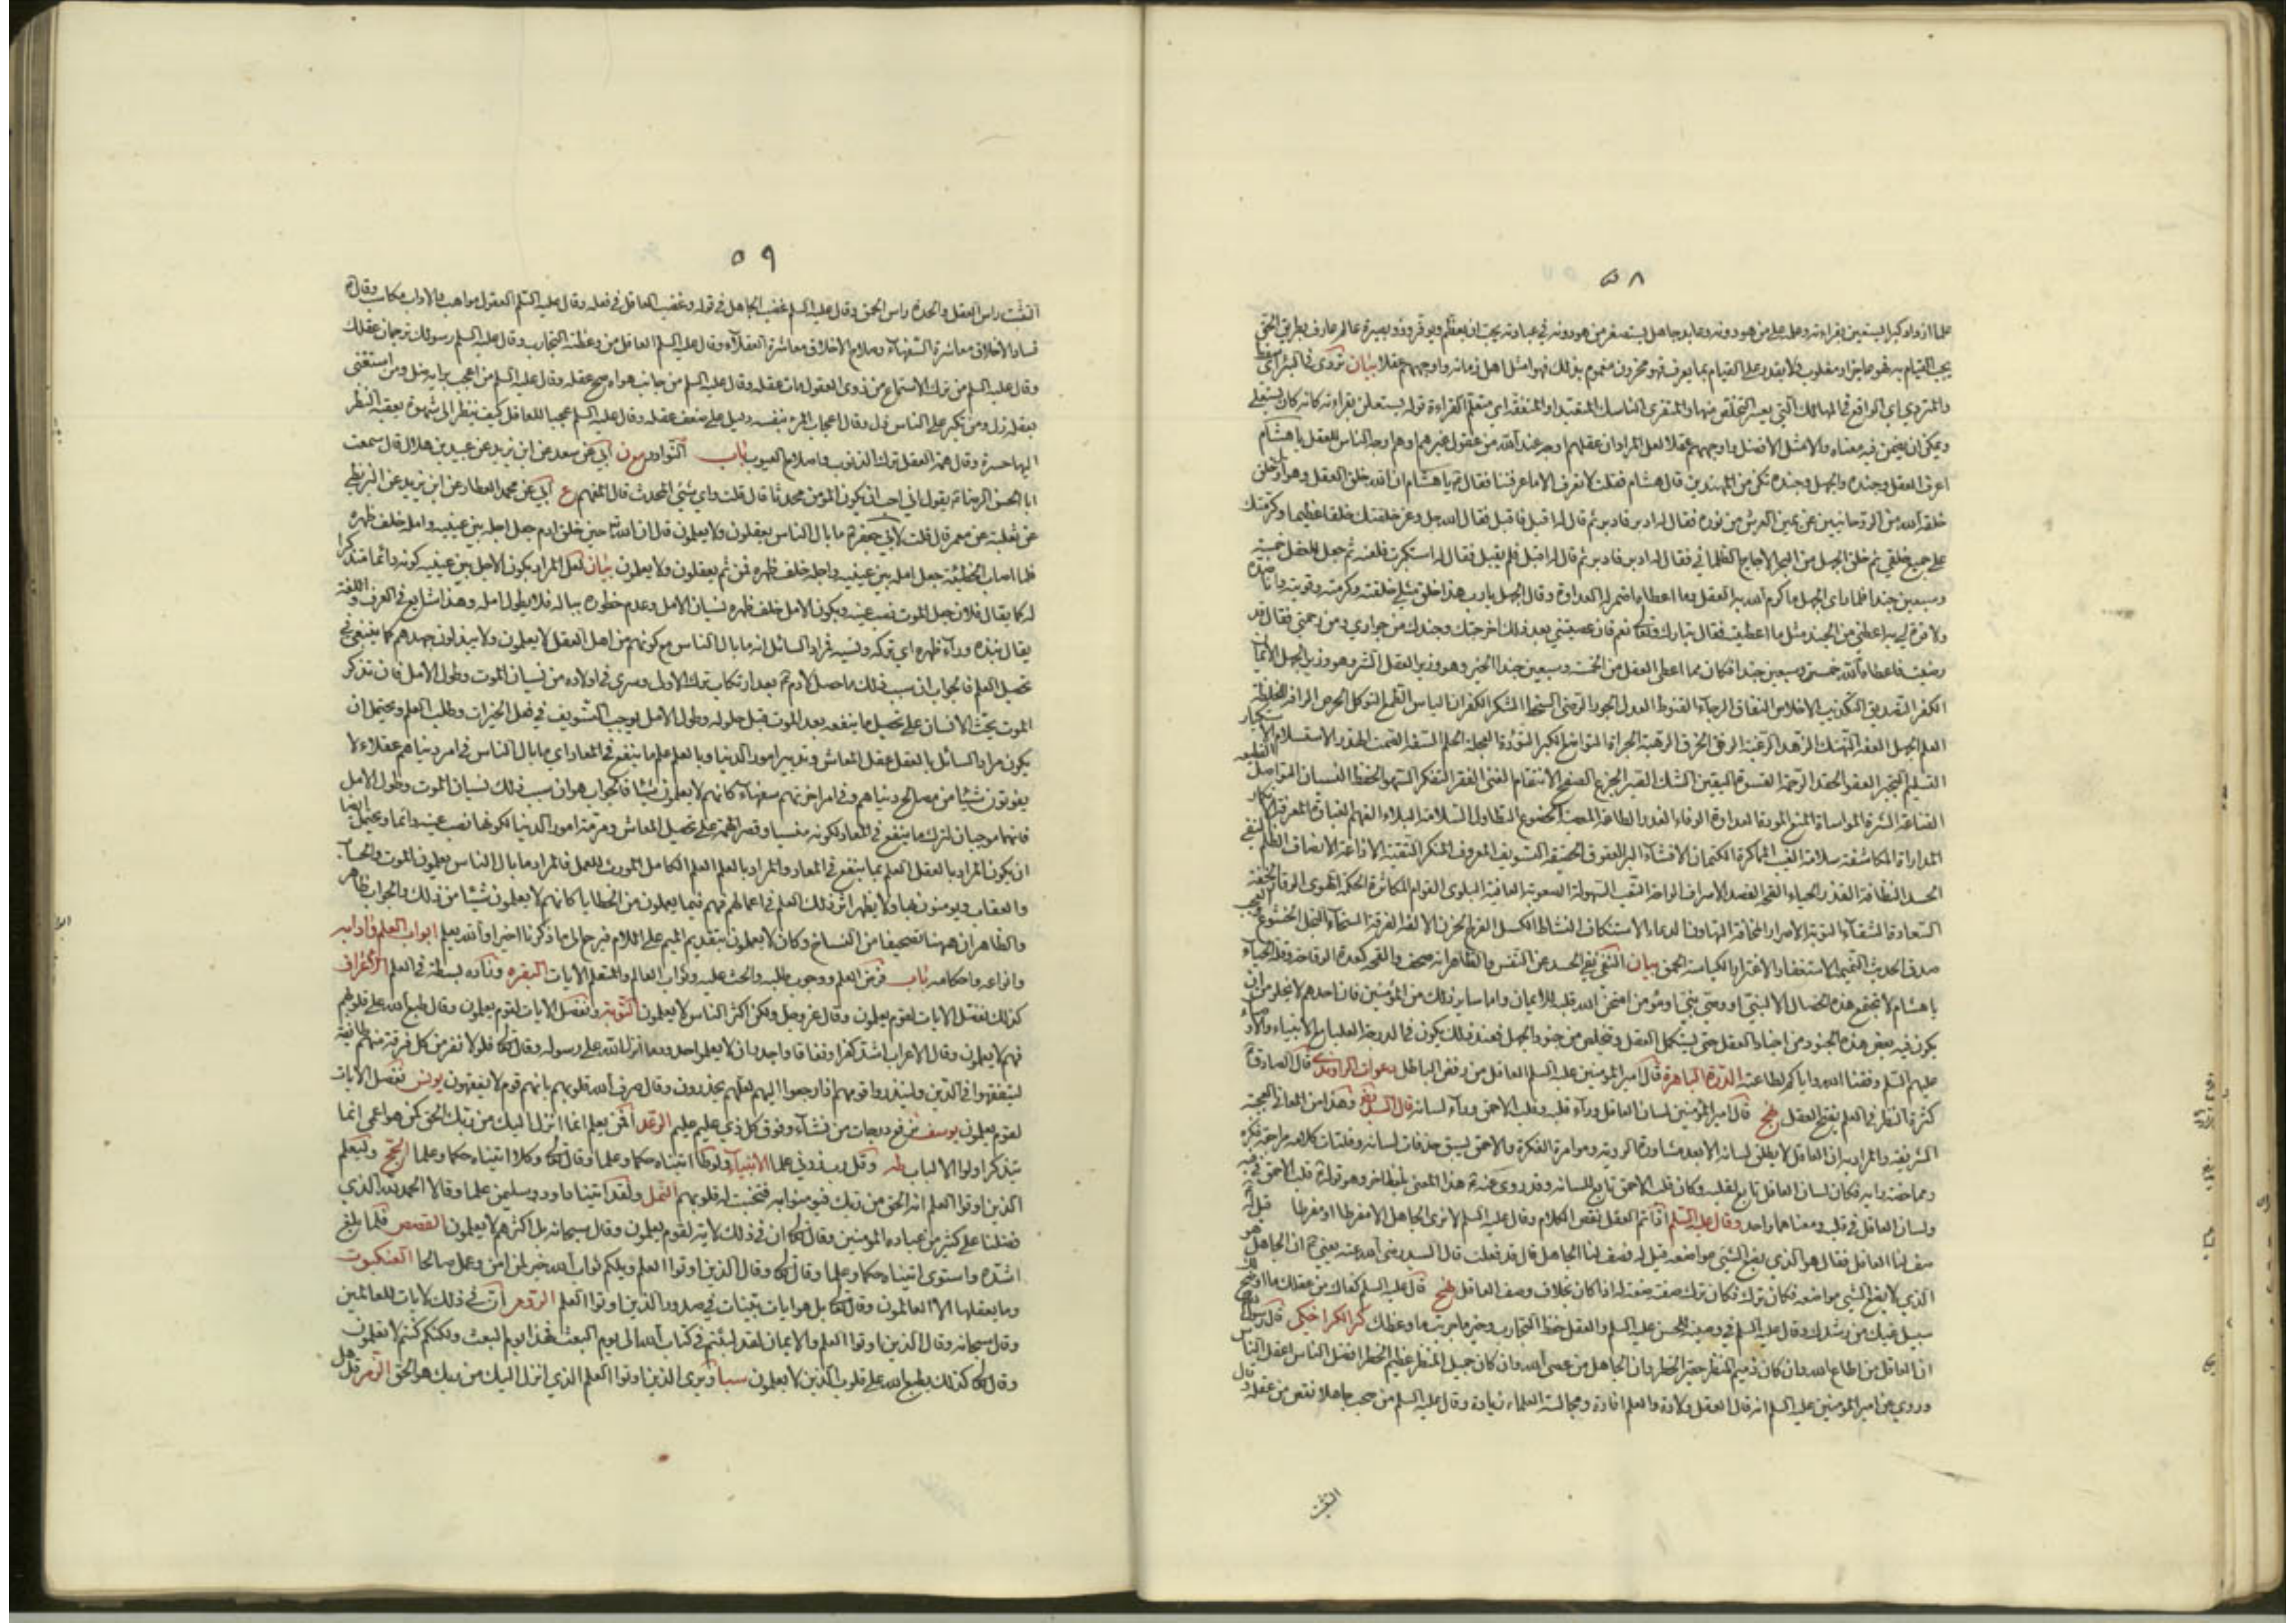 ٥٨
علما ازداد كبرا يستعين بقراءته وعلمه على من هو دونه وعابد جاهل يستصغر من هو دونه في عبادته يحب ان يعظم ويوقر وذو بصيرة عالم عارف بطريق الحق
يحب القيام به فهو عاجز او مغلوب فلا يقدر على القيام بما يعرف فهو محزون مغموم بذلك فهو امثل اهل زمانه واوجههم عقلا بيان تردى في البئر اي سقط
والمتردي اي الواقع في المهالك التي يعسر التخلص منها والمتقري الناسك المتعبد او المتفقه اي متعلم القراءة قوله يستعلن بقراءته كانه كان يستعلي
ويمكن ان يضمن فيه معناه والامثل الافضل واوجههم عقلا لعل المراد ان عقلهم اوجه عند الله من عقول غيرهم او هم اوجه الناس للعقل يا هشام
اعرف العقل وجنده والجهل وجنده تكن من المهتدين قال هشام فقلت لا نعرف الا ما عرفتنا فقال يا هشام ان الله خلق العقل وهو اول خلق
خلقه الله من الروحانيين عن يمين العرش من نوره فقال له ادبر فادبر ثم قال له اقبل فاقبل فقال الله جل وعز خلقتك خلقا عظيما وكرمتك
على جميع خلقي ثم خلق الجهل من البحر الاجاج الظلماني فقال له ادبر فادبر ثم قال له اقبل فلم يقبل فقال له استكبرت فلعنه ثم جعل للعقل خمسة
وسبعين جندا فلما راى الجهل ما كرم الله به العقل وما اعطاه اضمر له العداوة وقال الجهل يا رب هذا خلق مثلي خلقته وكرمته وقويته وانا ضده
ولا قوة لي به اعطني من الجند مثل ما اعطيته فقال تبارك وتعالى نعم فان عصيتني بعد ذلك اخرجتك وجندك من جواري ومن رحمتي فقال قد
رضيت فاعطاه الله خمسة وسبعين جندا فكان مما اعطى العقل من الخمسة وسبعين جندا الخير وهو وزير العقل الشر وهو وزير الجهل الايمان
الكفر التصديق التكذيب الاخلاص النفاق الرجاء القنوط العدل الجور الرضى السخط الشكر الكفران الياس الطمع التوكل الحرص الرافة الغلظة
العلم الجهل العفة التهتك الزهد الرغبة الرفق الخرق الرهبة الجراة التواضع الكبر التؤدة العجلة الحلم السفه الصمت الهذر الاستسلام الاستكبار
التسليم التجبر العفو الحقد الرحمة القسوة اليقين الشك الصبر الجزع الصفح الانتقام الغنى الفقر التفكر السهو الحفظ النسيان التواصل القطيعه
القناعة الشره المواساة المنع المودة العداوة الوفاء الغدر الطاعة المعصية الخضوع التطاول السلامة البلاء الفهم الغباوة المعرفة الانكار
المداراة المكاشفة سلامة الغيب المماكرة الكتمان الافشاء البر العقوق الحقيقة التسويف المعروف المنكر التقية الاذاعة الانصاف الظلم النفي
الحسد النظافة القذر الحياء القحة القصد الاسراف الراحة التعب السهولة الصعوبة العافية البلوى القوام المكاثرة الحكمة الهوى الوقار الخفة
السعادة الشقاء التوبة الاصرار المخافة التهاون الدعاء الاستنكاف النشاط الكسل الفرح الحزن الالفة الفرقة السخاء البخل الخشوع العجب
صدق الحديث النميمة الاستغفار الاغترار الكياسة الحمق بيان النفي نفي الحسد عن النفس والظاهر انه صحف والقحه كعدة الوقاحة وقلة الحياء
يا هشام لا تجتمع هذه الخصال الا لنبي او وصي نبي او مؤمن امتحن الله قلبه للايمان واما ساير ذلك من المؤمنين فان احدهم لا يخلو من ان
يكون فيه بعض هذه الجنود من اجناد العقل حتى يستكمل العقل ويتخلص من جنود الجهل فعند ذلك يكون في الدرجة العليا مع الانبياء والاوصياء
عليهم السلم وفقنا الله واياكم لطاعته الدرة الباهرة قال امير المؤمنين عليه السلم العاقل من رفض الباطل دعوات الراوندي قال الصادق
كثرة النظر في العلم يفتح العقل نهج قال امير المؤمنين لسان العاقل وراء قلبه وقلب الاحمق وراء لسانه قال السيد رض وهذا من المعاني العجيبة
الشريفة والمراد به ان العاقل لا يطلق لسانه الا بعد مشاورة الروية ومؤامرة الفكرة والاحمق يسبق حذفات لسانه وفلتات كلامه مراجعة فكره
ومماخضة رايه فكان لسان العاقل تابع لقلبه وكان قلب الاحمق تابع للسانه وقد روي عنه هذا المعنى بلفظ اخر وهو قوله قلب الاحمق في فيه
ولسان العاقل في قلبه ومعناهما واحد وقال عليه السلم اذا تم العقل نقص الكلام وقال عليه السلم لا ترى الجاهل الا مفرطا او مفرطا قيل له
صف لنا العاقل فقال هو الذي يضع الشيء مواضعه قيل له فصف لنا الجاهل قال قد فعلت قال السيد رضي الله عنه يعني ان الجاهل هو
الذي لا يضع الشيء مواضعه فكان ترك صفته صفة له اذ كان بخلاف وصف العاقل نهج قال عليه السلم كفاك من عقلك ما اوضح لك
سبيل غيك من رشدك وقال عليه السلم في وصيته للحسن عليه السلم والعقل حفظ التجارب وخير ما جربت ما وعظك كنز الكراجكي قال رسول الله
ان العاقل من اطاع الله وان كان ذميم المنظر حقير الخطر وان الجاهل من عصى الله وان كان جميل المنظر عظيم الخطر افضل الناس اعقل الناس
وروي عن امير المؤمنين عليه السلم انه قال العقل ولادة والعلم افادة ومجالسة العلماء زيادة وقال عليه السلم من صحب جاهلا نقص من عقله وقال
التثبت
٥٩
التثبت راس العقل والحدة راس الحمق وقال عليه السلم غضب الجاهل في قوله وغضب العاقل في فعله وقال عليه السلم العقول مواهب والاداب مكاسب وقال
فساد الاخلاق معاشرة السفهاء وصلاح الاخلاق معاشرة العقلاء وقال عليه السلم العاقل من وعظته التجارب وقال عليه السلم رسولك ترجمان عقلك
وقال عليه السلم من ترك الاستماع من ذوي العقول مات عقله وقال عليه السلم من جانب هواه صح عقله وقال عليه السلم من اعجب برايه ضل ومن استغنى
بعقله زل ومن تكبر على الناس ذل وقال اعجاب المرء بنفسه دليل على ضعف عقله وقال عليه السلم عجبا للعاقل كيف ينظر الى شهوة يعقبه النظر
اليها حسرة وقال همة العقل ترك الذنوب واصلاح العيوب باب النوادر ن ابي عن سعد عن ابن يزيد عن عبيد بن هلال قال سمعت
ابا الحسن الرضا يقول اني احب ان يكون المؤمن محدثا قال قلت واي شيء المحدث قال المفهم ع ابي عن محمد العطار عن ابن يزيد عن البزنطي
عن ثعلبة عن معمر قال قلت لابي جعفر ما بال الناس يعقلون ولا يعلمون قال ان الله حين خلق ادم جعل اجله بين عينيه وامله خلف ظهره
فلما اصاب الخطيئة جعل امله بين عينيه واجله خلف ظهره فمن ثم يعقلون ولا يعلمون بيان لعل المراد بكون الاجل بين عينيه كونه دائما متذكرا
له كما يقال فلان جعل الموت نصب عينيه وبكون الامل خلف ظهره نسيان الامل وعدم خطوره بباله فلا يطول امله وهذا شايع في العرف واللغة
يقال نبذه وراء ظهره اي تركه ونسيه فمراد السائل انه ما بال الناس مع كونهم من اهل العقل لا يعلمون ولا يبذلون جهدهم كما ينبغي في
تحصيل العلم فالجواب ان سبب ذلك ما حصل لادم بعد ارتكاب ترك الاولى وسرى في اولاده من نسيان الموت وطول الامل فان تذكر
الموت يحث الانسان على تحصيل ما ينفعه بعد الموت قبل حلوله وطول الامل يوجب التسويف في فعل الخيرات وطلب العلم ويحتمل ان
يكون مراد السائل بالعقل عقل المعاش وتدبير امور الدنيا وبالعلم علم ما ينفع في المعاد اي ما بال الناس في امر دنياهم عقلاء لا
يفوتون شيئا من مصالح دنياهم وفي امر اخرتهم سفهاء كانهم لا يعلمون شيئا فالجواب هو ان سبب ذلك نسيان الموت وطول الامل
فانهما موجبان لترك ما ينفع في المعاد لكونه منسيا وقصر الهمة على تحصيل المعاش ومرمة امور الدنيا لكونها نصب عينه دائما ويحتمل ايضا
ان يكون المراد بالعقل العلم بما ينفع في المعاد والمراد بالعلم العلم الكامل المورث للعمل فالمراد ما بال الناس يعلمون الموت والحساب
والعقاب ويومنون بها ولا يظهر اثر ذلك العلم في اعمالهم فهم فيما يعملون من الخطايا كانهم لا يعلمون شيئا من ذلك والجواب ظاهر
والظاهر ان ههنا تصحيفا من النساخ وكان لا يعملون بتقديم الميم على اللام فيرجع الى ما ذكرنا اخيرا والله يعلم ابواب العلم وادابه
وانواعه واحكامه باب فرض العلم ووجوب طلبه والحث عليه وثواب العالم والمتعلم الايات البقره وزاده بسطة في العلم الاعراف
كذلك نفصل الايات لقوم يعلمون وقال عز وجل ولكن اكثر الناس لا يعلمون التوبة ونفصل الايات لقوم يعلمون وقال وطبع الله على قلوبهم
فهم لا يعلمون وقال الاعراب اشد كفرا ونفاقا واجدر ان لا يعلموا حدود ما انزل الله على رسوله وقال تعالى فلولا نفر من كل فرقة منهم طائفة
ليتفقهوا في الدين ولينذروا قومهم اذا رجعوا اليهم لعلهم يحذرون وقال صرف الله قلوبهم بانهم قوم لا يفقهون يونس نفصل الايات
لقوم يعلمون يوسف نرفع درجات من نشاء وفوق كل ذي علم عليم الرعد افمن يعلم انما انزل اليك من ربك الحق كمن هو اعمى انما
يتذكر اولوا الالباب طه وقل رب زدني علما الانبياء ولوطا اتيناه حكما وعلما وقال تعالى وكلا اتيناه حكما وعلما الحج وليعلم
الذين اوتوا العلم انه الحق من ربك فيومنوا به فتخبت له قلوبهم النمل ولقد اتينا داود وسليمن علما وقالا الحمد لله الذي
فضلنا على كثير من عباده المؤمنين وقال تعالى ان في ذلك لاية لقوم يعلمون وقال سبحانه بل اكثرهم لا يعلمون القصص فلما بلغ
اشده واستوى اتيناه حكما وعلما وقال تعالى وقال الذين اوتوا العلم ويلكم ثواب الله خير لمن امن وعمل صالحا العنكبوت
وما يعقلها الا العالمون وقال تعالى بل هو ايات بينات في صدور الذين اوتوا العلم الروم ان في ذلك لايات للعالمين
وقال سبحانه وقال الذين اوتوا العلم والايمان لقد لبثتم في كتاب الله الى يوم البعث فهذا يوم البعث ولكنكم كنتم لا تعلمون
وقال تعالى كذلك يطبع الله على قلوب الذين لا يعلمون سبا ويرى الذين اوتوا العلم الذي انزل اليك من ربك هو الحق الزمر قل هل